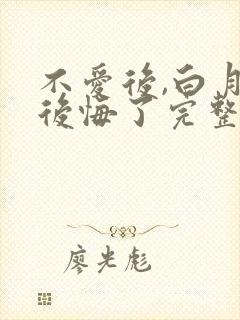 不愛後,白月
後悔了完整
廖光彪